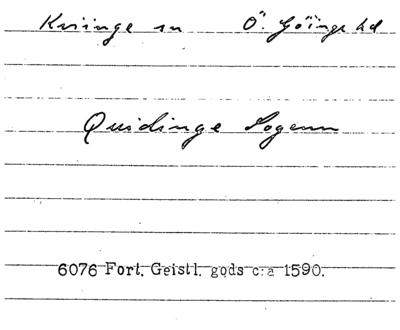 Kviinge sn Ö. Göinge hd
Quidinge Sogenn
6076 Fort. Geistl. gods c:a 1590.